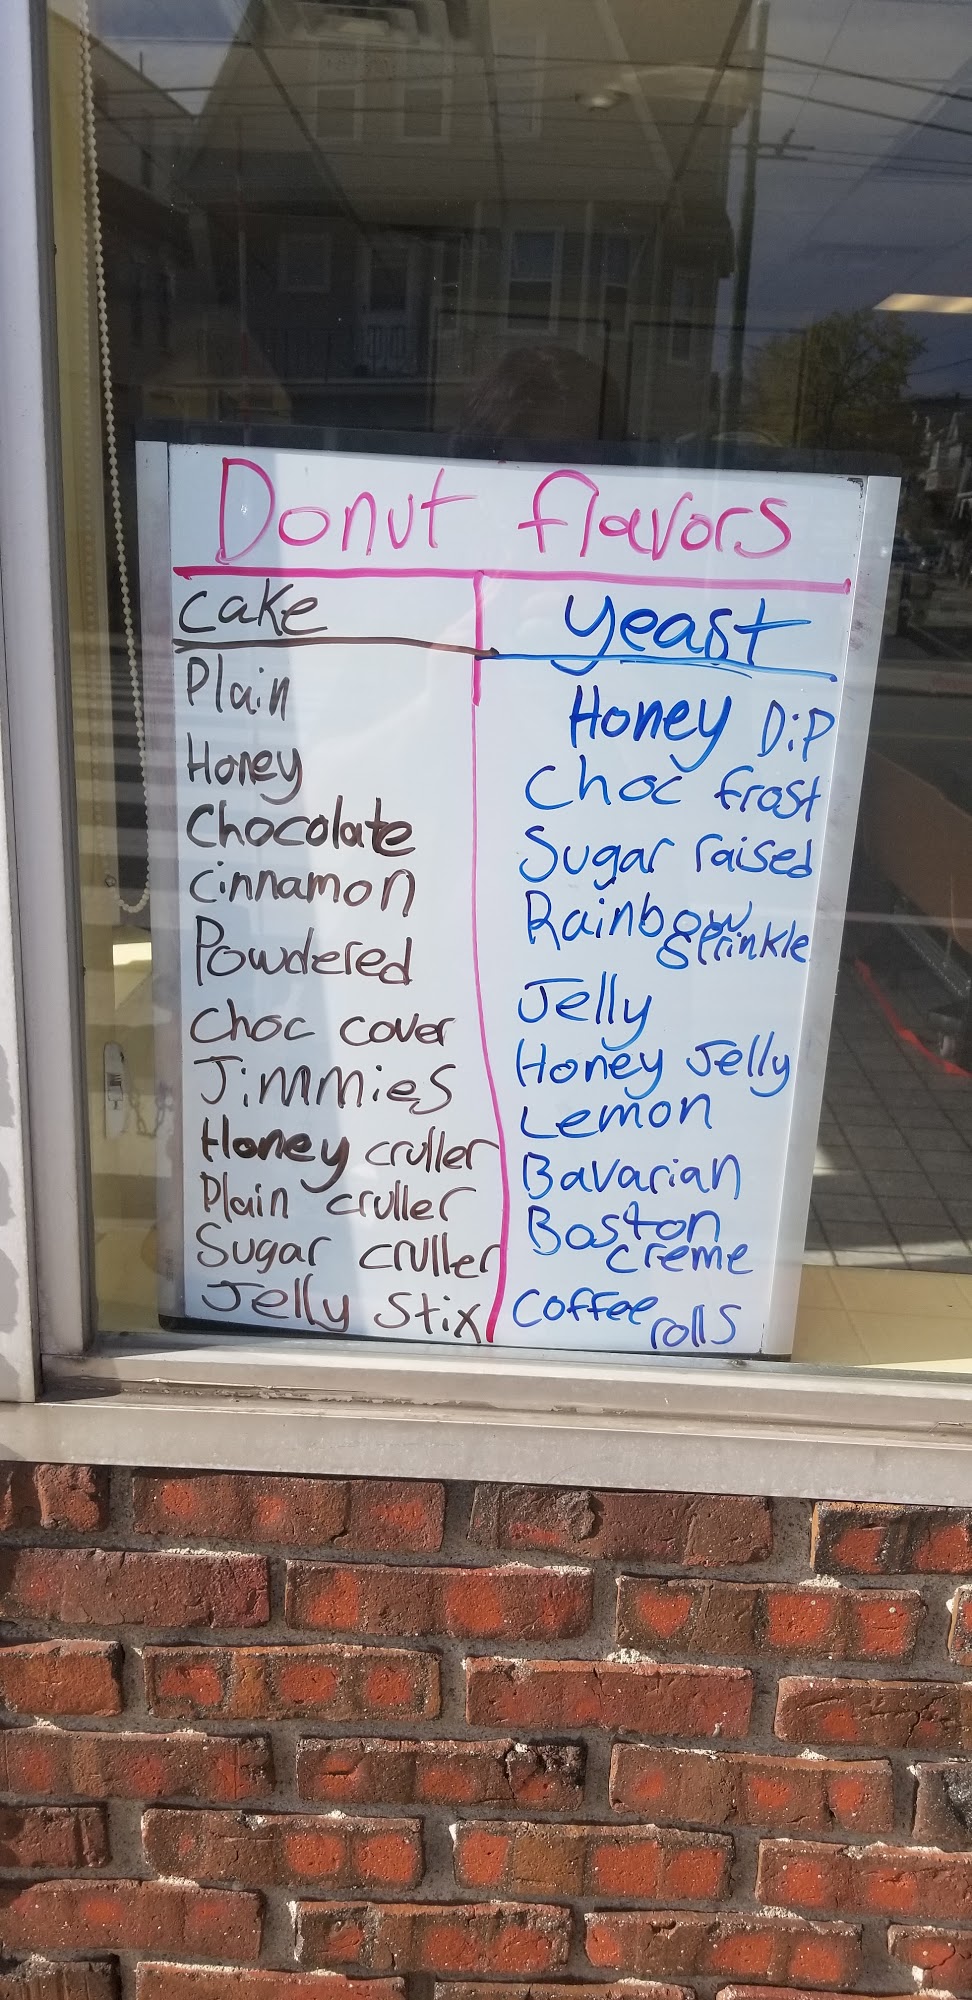 Donut flavors
cake
Plain
Honey
Chocolate
cinnamon
Powdered
choc cover
Jimmies
Honey cruller
Plain cruller
Sugar cruller
Jelly Stix
yeast
Honey Dip
choc frost
Sugar raised
Rainbow
sprinkle
Jelly
Honey Jelly
Lemon
Bavarian
Boston
creme
coffee
rolls